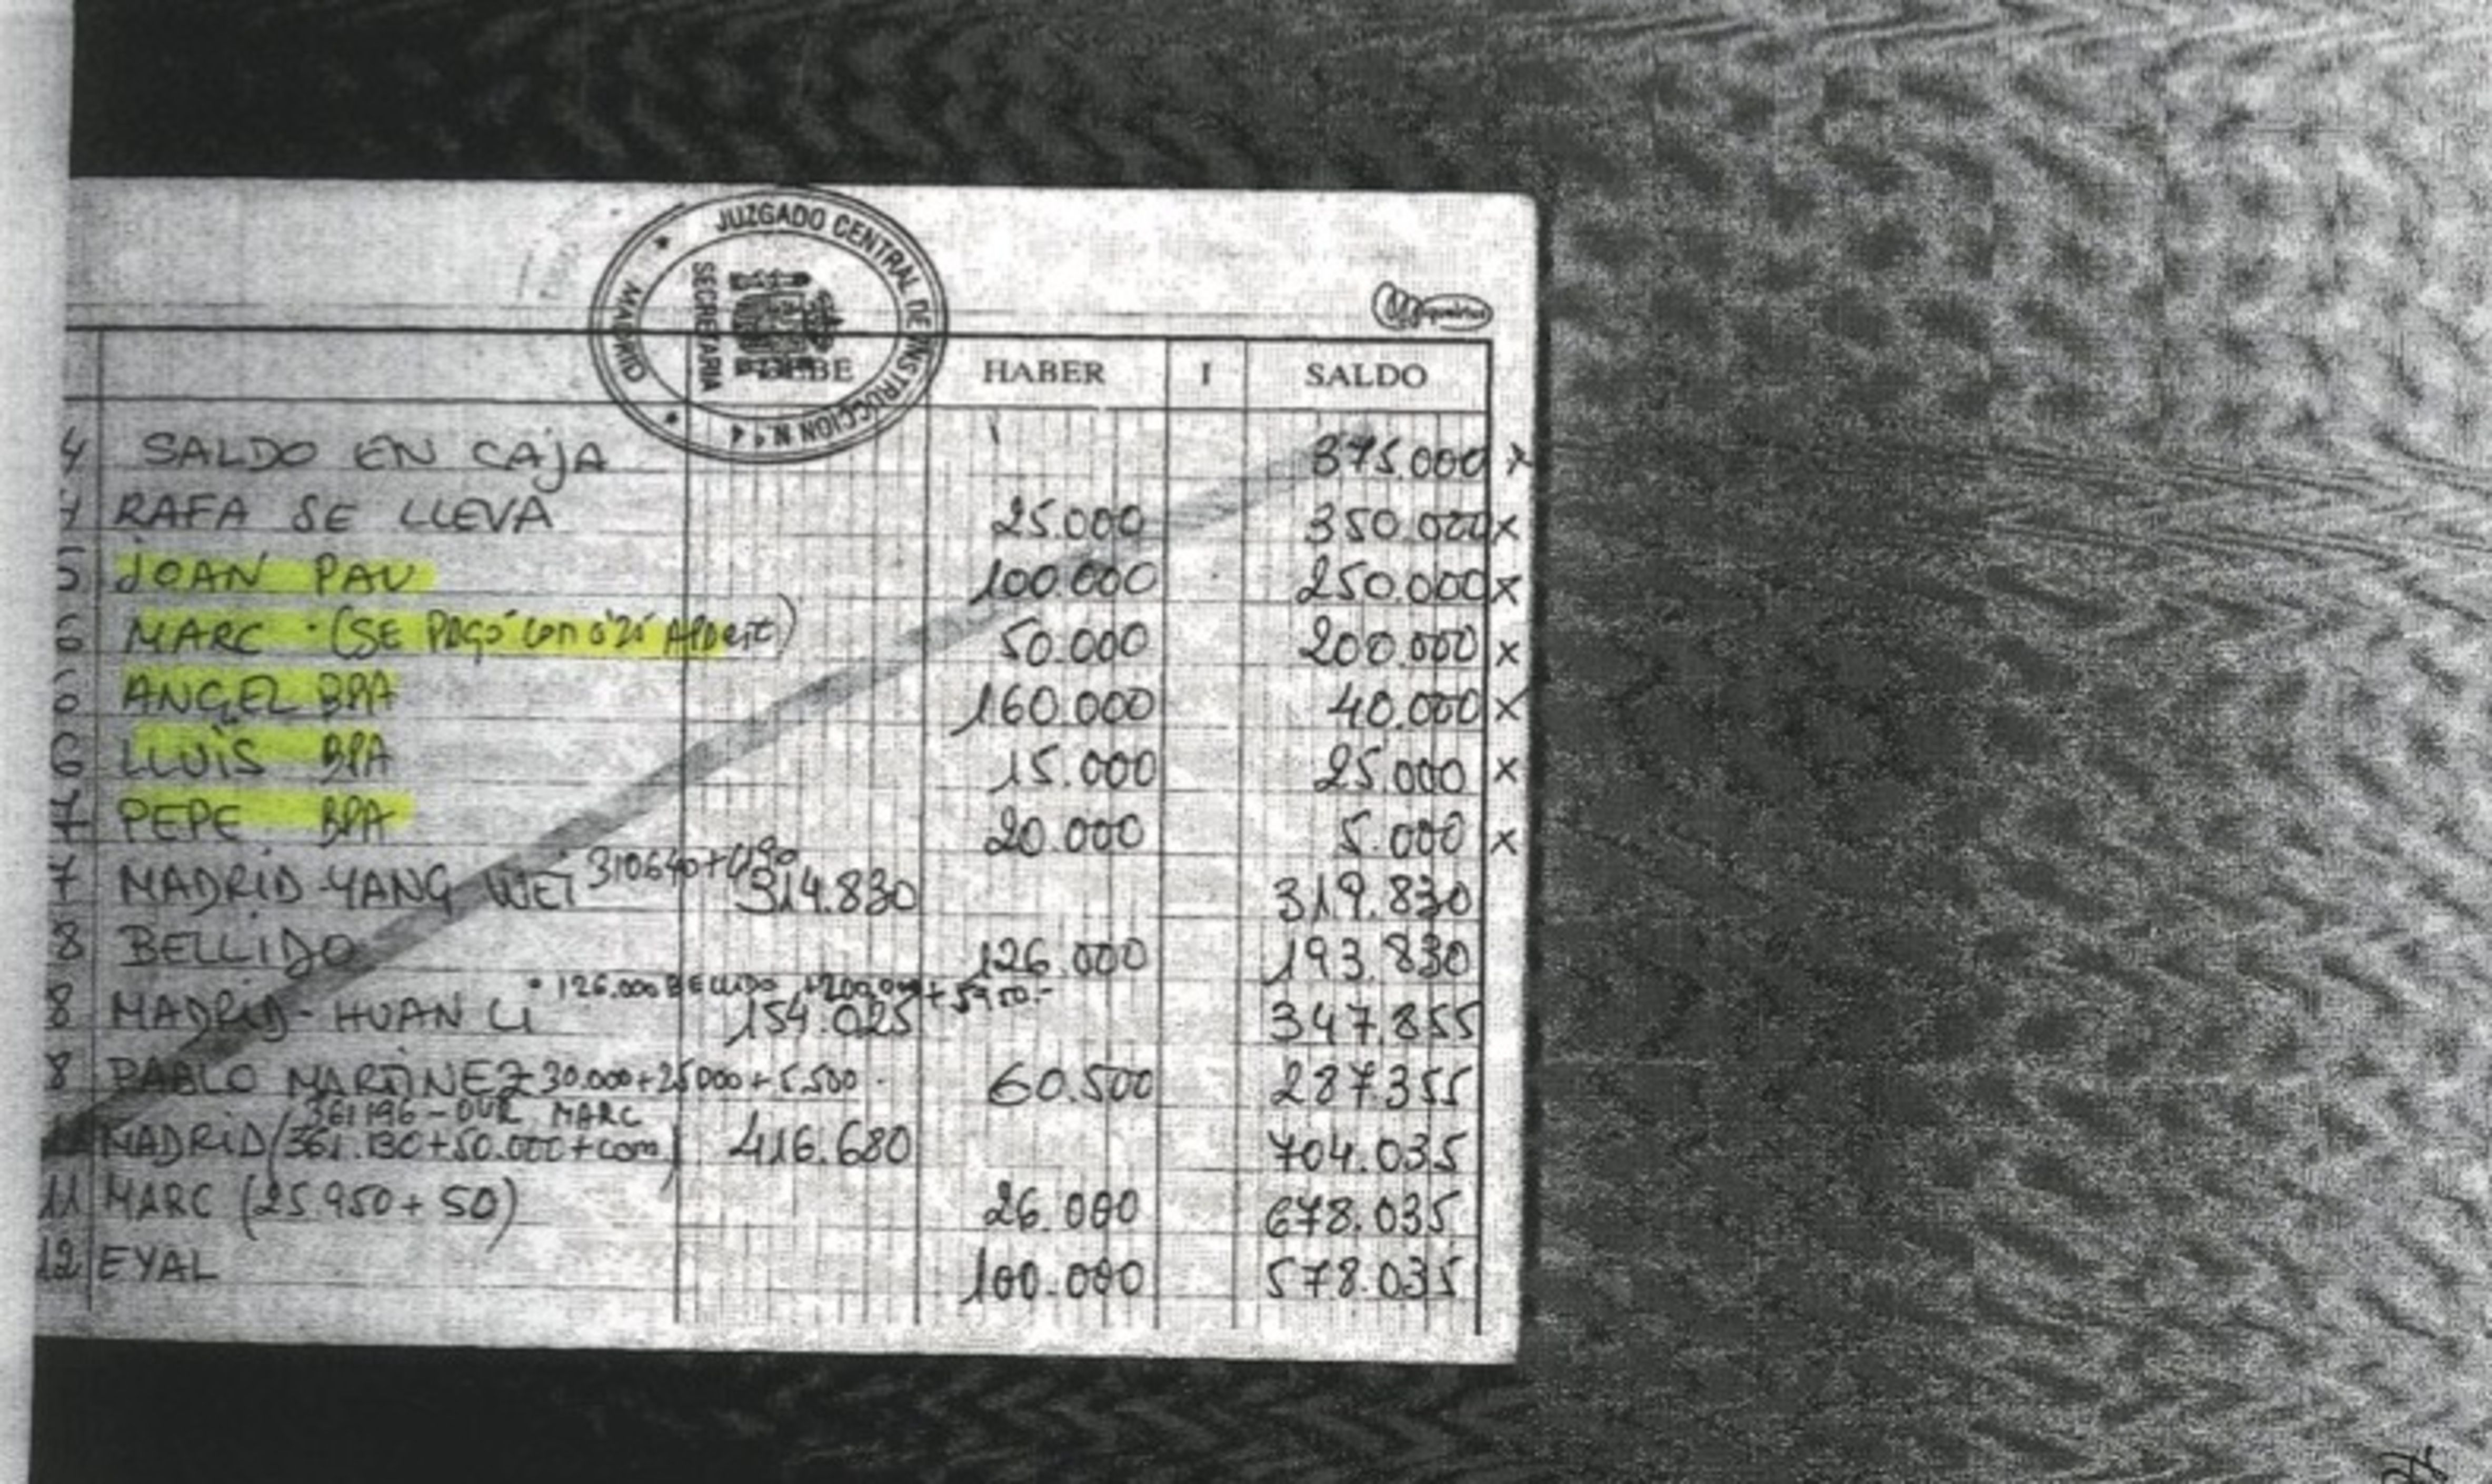 JUZGADO CENTRAL DE INSTRUCCION N.º 4
SECRETARIA
MADRID
DEBE HABER I SALDO
4 SALDO EN CAJA 375.000 x
4 RAFA SE LLEVA 25.000 350.000 x
5 JOAN PAU 100.000 250.000 x
6 MARC (SE PAGÓ con 0'20 ) 50.000 200.000 x
6 ANGEL BPA 160.000 40.000 x
6 LLUIS BPA 15.000 25.000 x
7 PEPE BPA 20.000 5.000 x
310640+4190
7 MADRID-YANG WEI 314.830 319.830
8 BELLIDO 126.000 193.830
126.000 BELLIDO +
8 MADRID-HUAN LI 154.025 347.855
8 PABLO MARTINEZ 30.000+25000+5.500 60.500 287.355
361196 - MARC
MADRID (361.130+50.000+com) 416.680 704.035
11 MARC (25.950+50) 26.000 678.035
12 EYAL 100.000 578.035